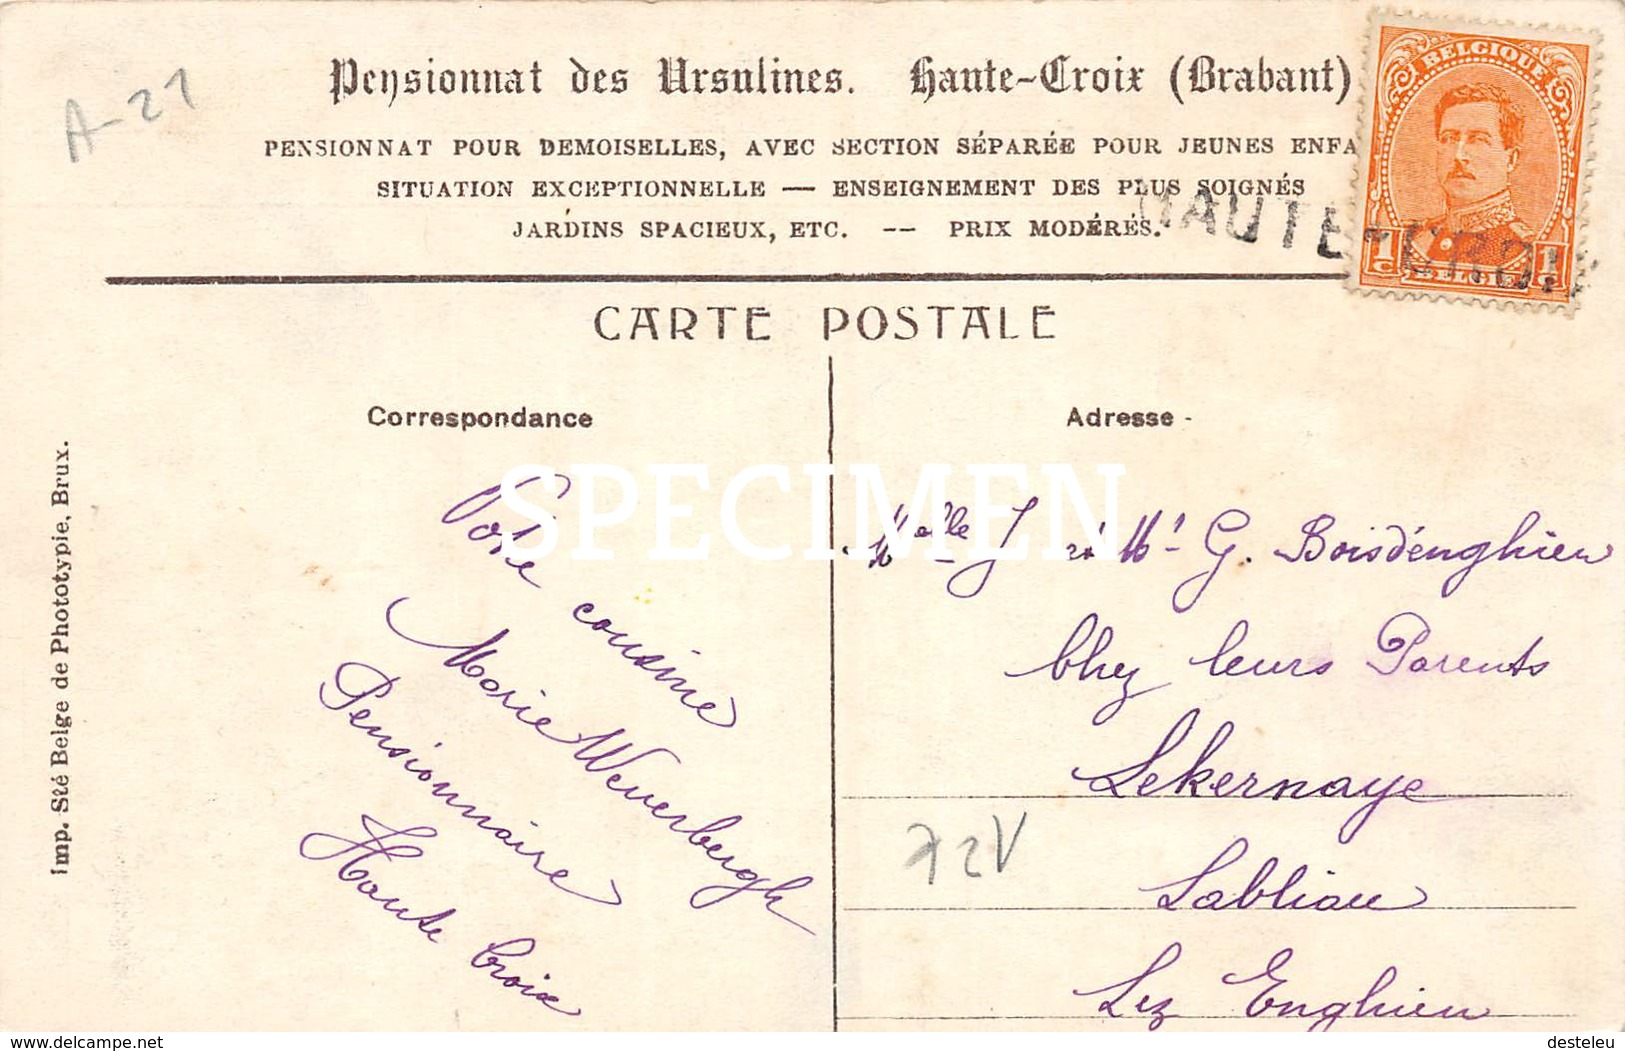 A-21
Pensionnat des Ursulines. Haute-Croix (Brabant)
PENSIONNAT POUR DEMOISELLES, AVEC SECTION SÉPARÉE POUR JEUNES ENFA
SITUATION EXCEPTIONNELLE — ENSEIGNEMENT DES PLUS SOIGNÉS
JARDINS SPACIEUX, ETC. -- PRIX MODÉRÉS.
BELGIQUE
1c 1c
BELGIË
HAUTE-CROIX
CARTE POSTALE
Correspondance
Votre cousine
Marie Weverbergh
Pensionnaire
Haute Croix
Imp. Sté Belge de Phototypie, Brux.
Adresse -
Melle J et Mr G. Boisdenghien
Chez leurs Parents
Lekernaye
Labliau
Lez Enghien
72V
SPECIMEN
www.delcampe.net
desteleu